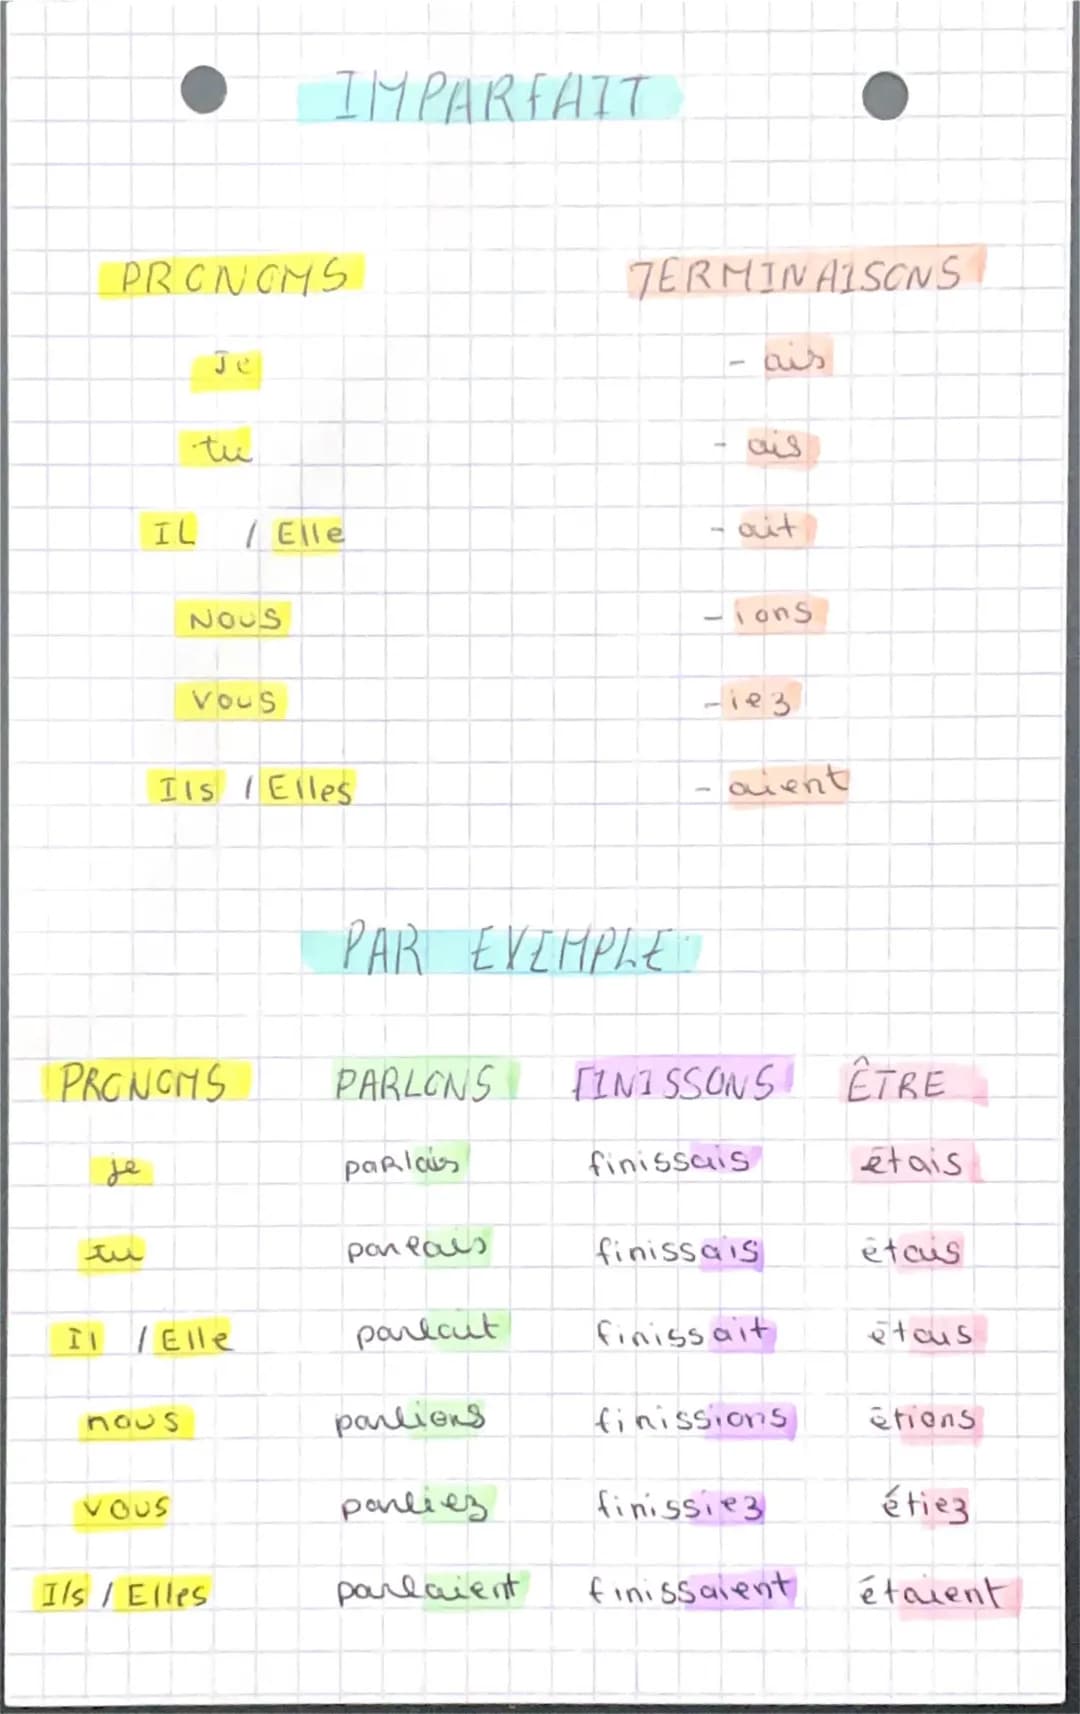 IMPARFAIT
PRONOMS TERMINAISONS
Je - ais
tu - ais
IL / Elle - ait
NOUS - ions
VOUS - iez
Ils / Elles - aient
PAR EXEMPLE:
PRONOMS PARLONS FINISSONS ÊTRE
je parlais finissais étais
tu parlais finissais étais
Il / Elle parlait finissait étais
nous parlions finissions étions
vous parliez finissiez étiez
Ils / Elles parlaient finissaient étaient